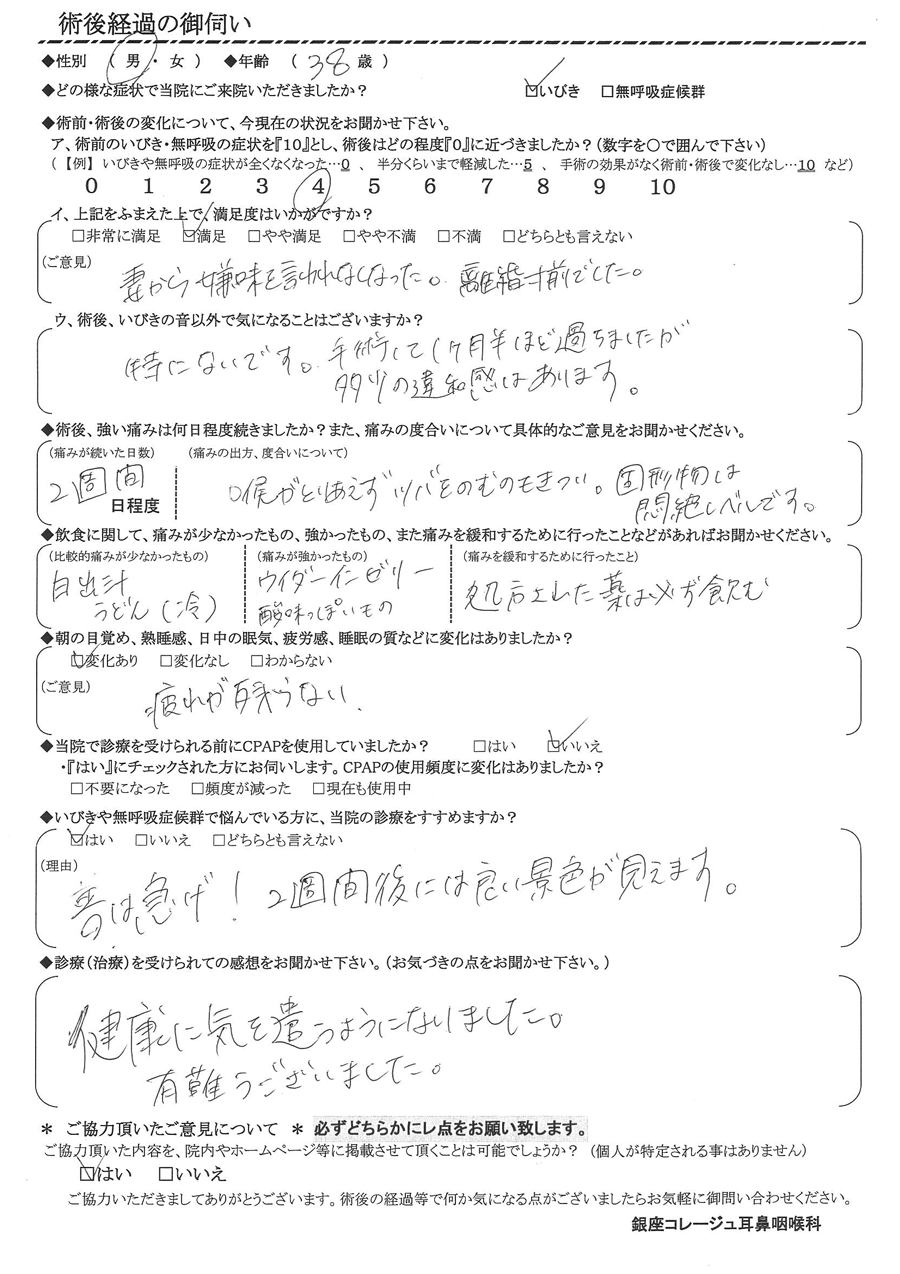 術後経過の御伺い
◆性別 ( 男 ・ 女 ) ◆年齢 ( 38 歳 )
◆どの様な症状で当院にご来院いただきましたか? ☑いびき □無呼吸症候群
◆術前・術後の変化について、今現在の状況をお聞かせ下さい。
ア、術前のいびき・無呼吸の症状を『10』とし、術後はどの程度『0』に近づきましたか?(数字を〇で囲んで下さい)
(【例】 いびきや無呼吸の症状が全くなくなった…0 、 半分くらいまで軽減した…5 、 手術の効果がなく術前・術後で変化なし…10 など)
0 1 2 3 4 5 6 7 8 9 10
イ、上記をふまえた上で、満足度はいかがですか?
□非常に満足 ☑満足 □やや満足 □やや不満 □不満 □どちらとも言えない
(ご意見)
妻から嫌味を言われなくなった。離婚寸前でした。
ウ、術後、いびきの音以外で気になることはございますか?
特にないです。手術して1ヶ月半ほど過ちましたが
多少の違和感はあります。
◆術後、強い痛みは何日程度続きましたか?また、痛みの度合いについて具体的なご意見をお聞かせください。
(痛みが続いた日数) (痛みの出方、度合いについて)
2週間 日程度
喉がとりあえずツバをのむのもきつい。固形物は
悶絶レベルです。
◆飲食に関して、痛みが少なかったもの、強かったもの、また痛みを緩和するために行ったことなどがあればお聞かせください。
(比較的痛みが少なかったもの) (痛みが強かったもの) (痛みを緩和するために行ったこと)
白出汁 ウイダーインゼリー 処方された薬は必ず飲む
うどん(冷) 酸味っぽいもの
◆朝の目覚め、熟睡感、日中の眠気、疲労感、睡眠の質などに変化はありましたか?
☑変化あり □変化なし □わからない
(ご意見)
疲れが残らない
◆当院で診療を受けられる前にCPAPを使用していましたか? □はい ☑いいえ
・『はい』にチェックされた方にお伺いします。CPAPの使用頻度に変化はありましたか?
□不要になった □頻度が減った □現在も使用中
◆いびきや無呼吸症候群で悩んでいる方に、当院の診療をすすめますか?
☑はい □いいえ □どちらとも言えない
(理由)
善は急げ! 2週間後には良い景色が見えます。
◆診療(治療)を受けられての感想をお聞かせ下さい。(お気づきの点をお聞かせ下さい。)
健康に気を遣うようになりました。
有難うございました。
＊ ご協力頂いたご意見について ＊ 必ずどちらかにレ点をお願い致します。
ご協力頂いた内容を、院内やホームページ等に掲載させて頂くことは可能でしょうか? (個人が特定される事はありません)
☑はい □いいえ
ご協力いただきましてありがとうございます。術後の経過等で何か気になる点がございましたらお気軽に御問い合わせください。
銀座コレージュ耳鼻咽喉科